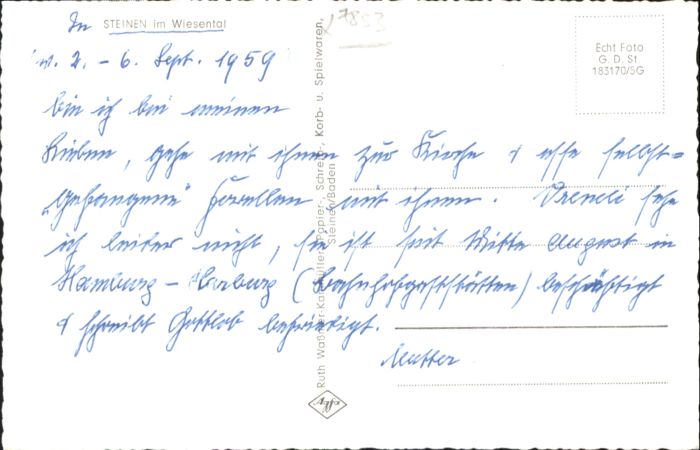 In STEINEN im Wiesental
v. 2. - 6. Sept. 1959
bin ich bei meinen
Lieben, gehe mit ihnen zur Kirche & esse selbst-
„gefangene" Forellen mit ihnen. Vreneli sehe
ich leider nicht, sie ist seit Mitte August in
Hamburg - Harburg (Bahnhofgaststätten) beschäftigt
& schreibt Gottlob befriedigt.
Mutter
7853
Echt Foto
G. D. St.
183170/5G
Ruth Papier-, Schreib-, Korb- u. Spielwaren,
Steinen/Baden